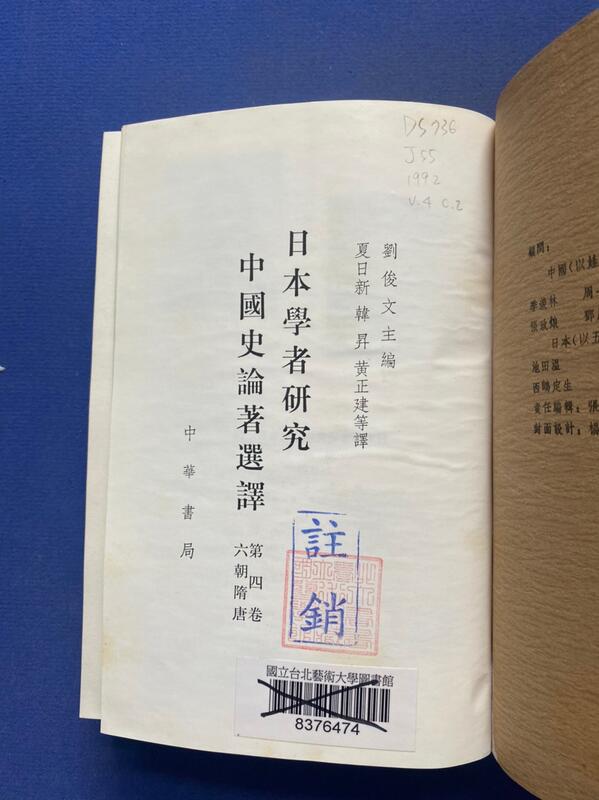 DS736
J55
1992
v.4 c.2
劉俊文主編
夏日新 韓昇 黃正建等譯
日本學者研究
中國史論著選譯
第四卷
六朝隋唐
中華書局
註銷
國立台北藝術大學圖書館
8376474
顧問：
中國（以姓
季羨林 周一
張政烺 鄧
日本（以五
池田溫
西嶋定生
責任編輯：張
封面設計：楊